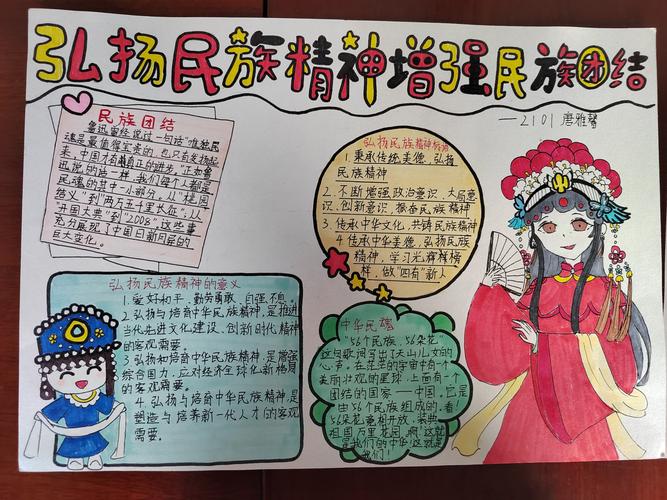 弘扬民族精神增强民族团结
—2101 唐雅馨
民族团结
鲁迅曾经说过一句话"惟独民
魂是最值得宝贵的,也只有发扬起
来,中国才有真正的进步。"正如鲁
迅说的话一样,我们每个人都是
民魂的其中一小部分,从"桃园
结义"到"两万五千里长征",从
"开国大典"到"2008",这些事
充分展现了中国日新月异的
巨大变化。
弘扬民族精神
1.秉承传统美德,弘扬
民族精神
2.不断增强政治意识、大局意
识、创新意识,振奋民族精神
3.传承中华文化,共铸民族精神
4.传承中华美德,弘扬民族
精神,学习光辉榜
样,做"四有"新人
弘扬民族精神的意义
1.爱好和平、勤劳勇敢、自强不息。
2.弘扬与培育中华民族精神,是推进
当代先进文化建设,创新时代精神
的客观需要。
3.弘扬和培育中华民族精神,是增强
综合国力,应对经济全球化新格局
的客观需要。
4.弘扬与培育中华民族精神,是
塑造与培养新一代人才的客观
需要。
中华民魂
"56个民族,56朵花"
这句歌词写出了天山儿女的
心声。在茫茫的宇宙中有一个
美丽壮观的星球,上面有一个
团结的国家——中国,它是
由56个民族组成的,看!
56朵花竞相开放,装典
祖国万里花园,啊!这就
是我们的中华这就是
我们!